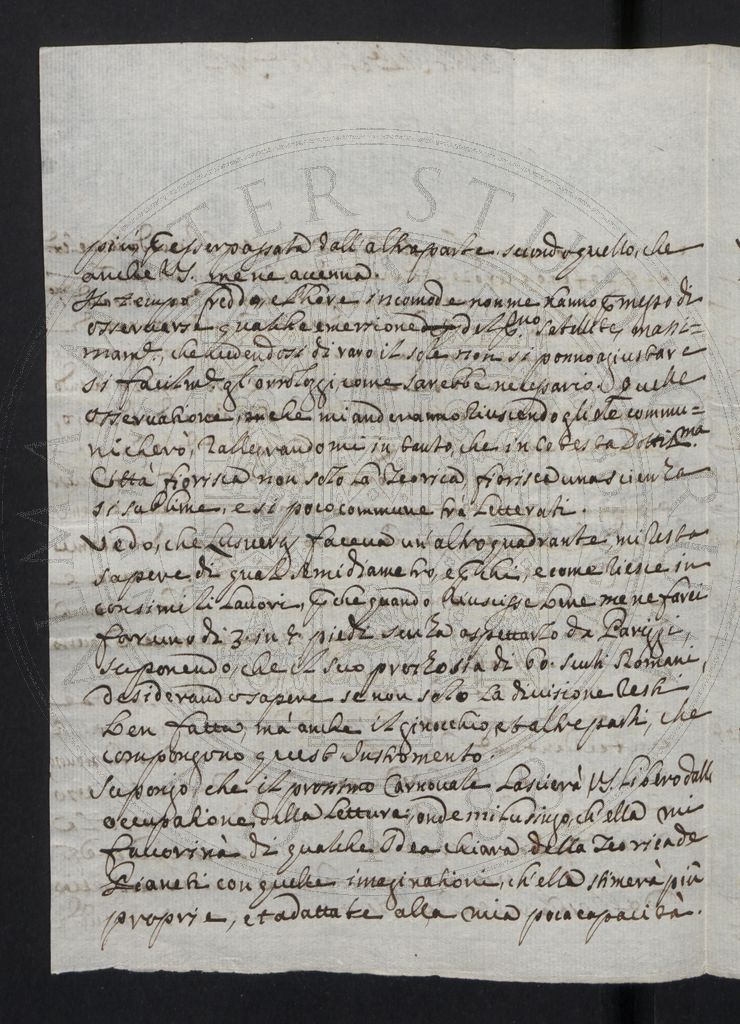 più ꝑ esser passata dall'altra parte, secondo quello, che
anche V.S. me ne accenna.
Il tempo freddo, e l'hore incomode non me hanno ꝑmesso di
osservare qualche emersione del pmo satellite, massi=
mamte, che vedendosi di raro il sole non si ponno agiustare
si facilmte gl'orrologgi, come sarebbe necessario. Quelle
osservazione, in che mi anderanno riuscendo gliele commu=
nicherò, rallegrandomi in tanto, che in cotesta Dottissma
Città fiorisca non solo la Teorica, fiorisca una scienza
si sublime, e si poco commune tra letterati.
Vedo, che Lusverg faceva un'altro quadrante, mi resta
sapere di qual semidiametro, e ꝑ chi, e come riesce in
consimili lavori, ꝑche quando riuscisse bene me ne farei
far uno di 3. in 4. piedi senza aspettarlo da Pariggi,
suponendo, che il suo prezzo sia di 60. scuti Romani,
desiderando sapere se non solo la divisione resti
ben fatta, mà anche il ginocchio, et altre parti, che
compongono quest'instromento.
Supongo, che il prossimo Carnovale lascierà V.S. libero dalla
occupatione della lettura, onde mi lusingo, ch'ella mi
favorirà di qualche Idea chiara della Teorica de
Pianeti con quelle imaginationi, ch'ella stimerà più
proprie, et adattate alla mia poca capacità.